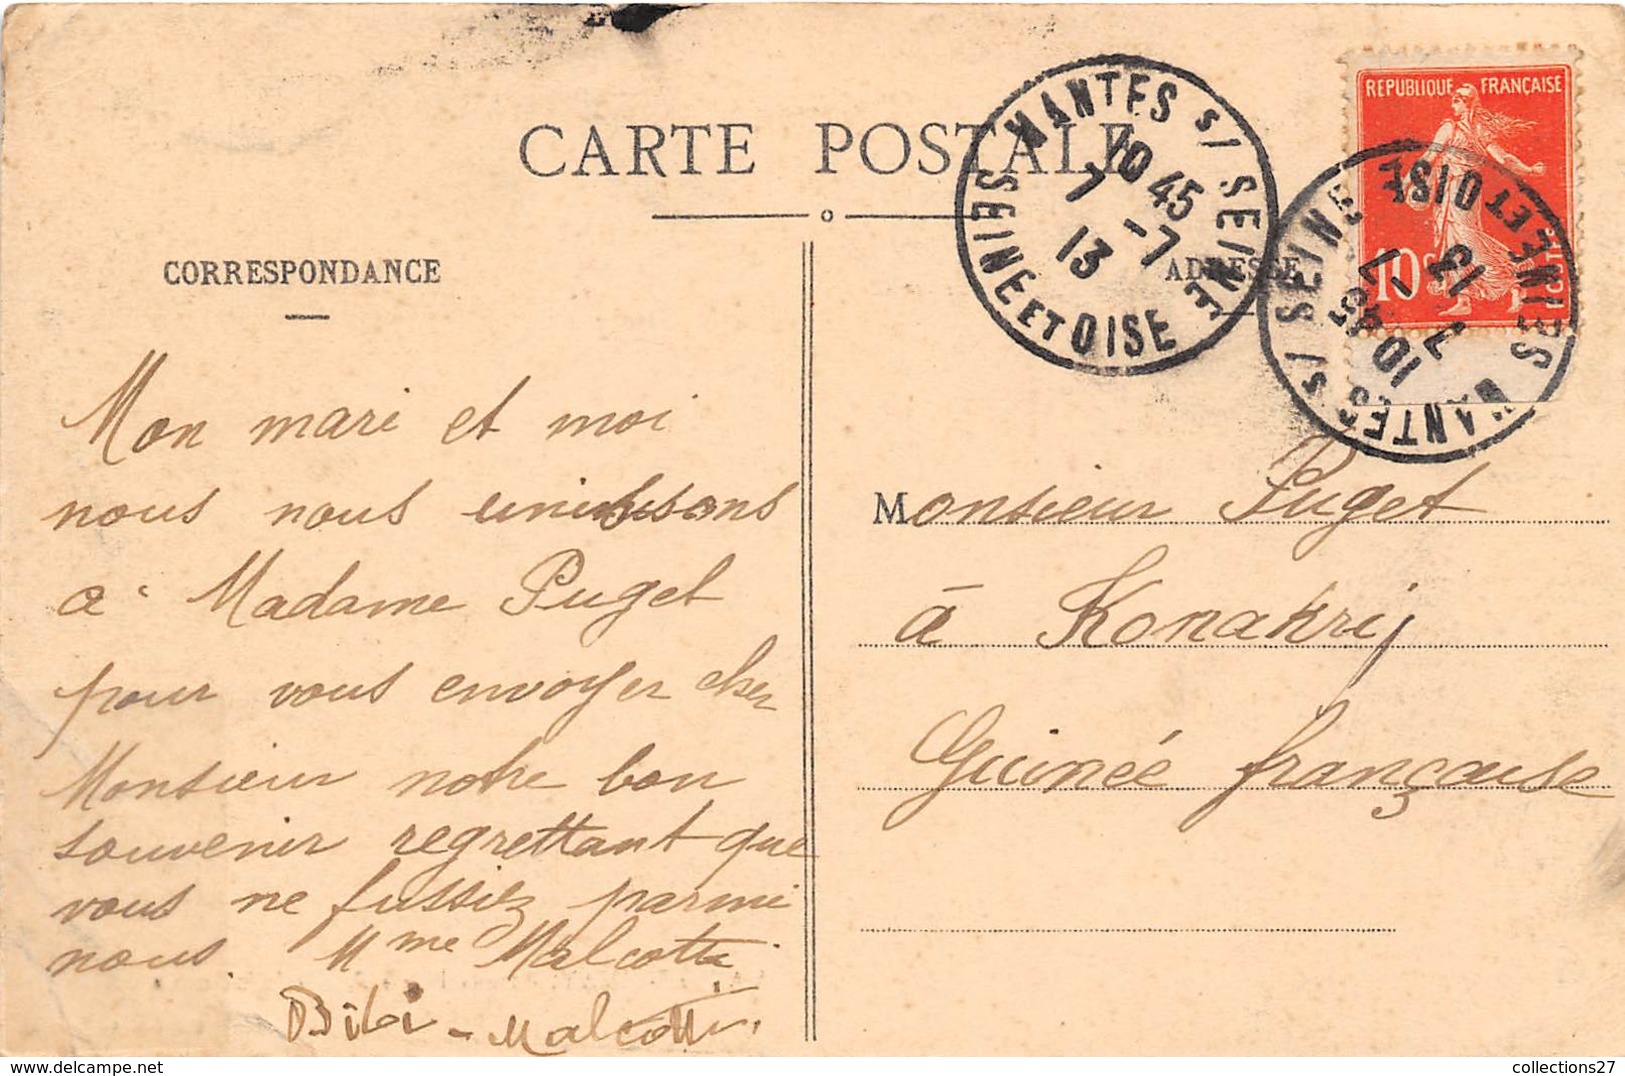 CARTE POSTALE
CORRESPONDANCE
ADRESSE
REPUBLIQUE FRANÇAISE
10c
POSTES
MANTES s/ SEINE
10 45
7 -7
13
SEINE ET OISE
MANTES s/ SEINE
10 45
7 -7
13
SEINE ET OISE
Mon mari et moi
nous nous unissons
à Madame Puget
pour vous envoyer cher
Monsieur notre bon
souvenir regrettant que
vous ne fussiez parmi
nous. Mme Malcotti
Bibi - Malcotti.
Monsieur Puget
à Konakrij
Guinée française
collections27